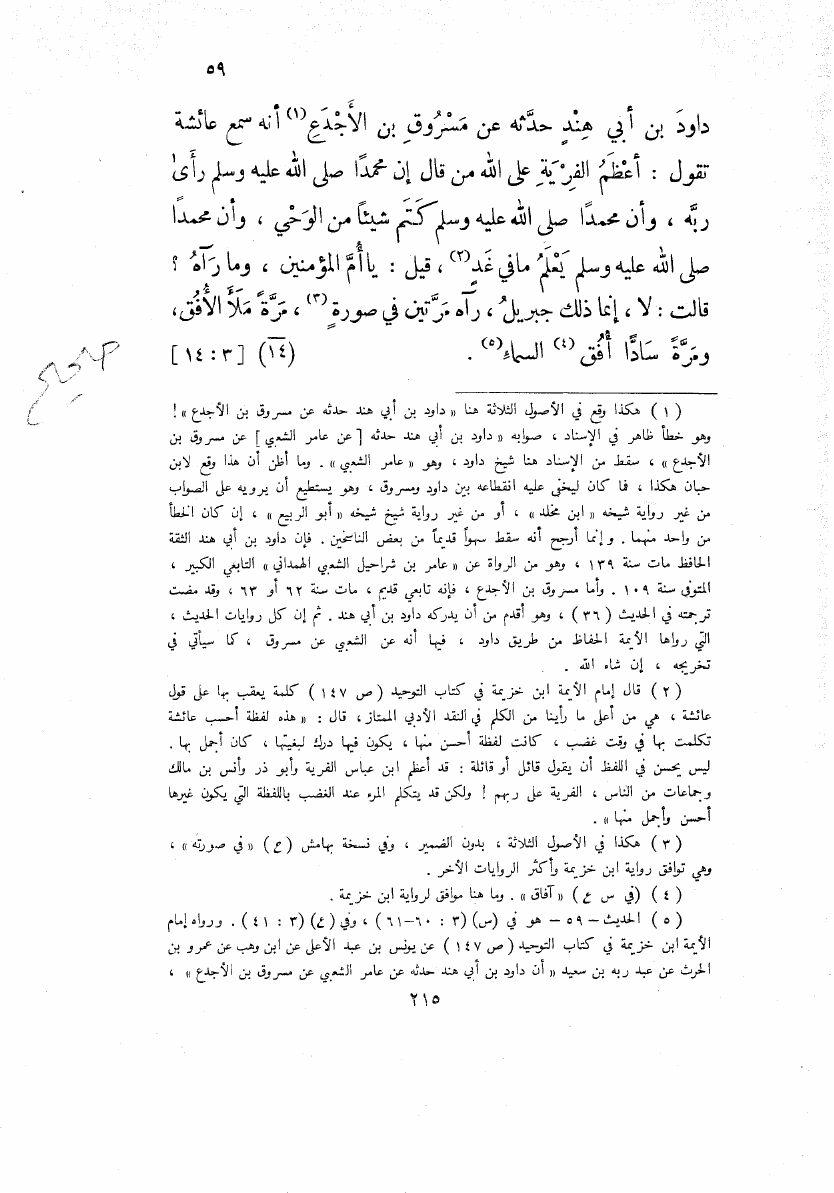 ٥٩
داودَ بن أبي هِنْدٍ حدَّثه عن مَسْرُوقِ بن الأَجْدَعِ(١) أنه سمع عائشة
تقول : أَعْظَمُ الفِرْيَةِ على الله من قال إن محمدًا صلى الله عليه وسلم رأَىٰ
ربَّه ، وأن محمدًا صلى الله عليه وسلم كَتَم شيئاً من الوَحْيِ ، وأن محمدًا
صلى الله عليه وسلم يَعْلَمُ مافي غَدٍ(٢) ، قيل : ياأُمَّ المؤمنين ، وما رَآهُ ؟
قالت : لا ، إنما ذلك جبريلُ ، رآه مَرَّتين في صورةٍ(٣) ، مَرَّةً مَلَأَ الأُفُق،
ومَرَّةً سَادًّا أُفُق (٤) السماء(٥) . (١٤) [١٤:٣]
صحيح
(١) هكذا وقع في الأصول الثلاثة هنا «داود بن أبي هند حدثه عن مسروق بن الأجدع»!
وهو خطأ ظاهر في الإسناد ، صوابه «داود بن أبي هند حدثه [عن عامر الشعبي] عن مسروق بن
الأجدع» ، سقط من الإسناد هنا شيخ داود ، وهو «عامر الشعبي» . وما أظن أن هذا وقع لابن
حبان هكذا ، فما كان ليخفى عليه انقطاعه بين داود ومسروق ، وهو يستطيع أن يرويه على الصواب
من غير رواية شيخه «ابن مخلد» ، أو من غير رواية شيخ شيخه «أبو الربيع» ، إن كان الخطأ
من واحد منهما . وإنما أرجح أنه سقط سهواً قديماً من بعض الناسخين . فإن داود بن أبي هند الثقة
الحافظ مات سنة ١٣٩ ، وهو من الرواة عن «عامر بن شراحيل الشعبي الهمداني» التابعي الكبير ،
المتوفى سنة ١٠٩ . وأما مسروق بن الأجدع ، فإنه تابعي قديم ، مات سنة ٦٢ أو ٦٣ ، وقد مضت
ترجمته في الحديث (٣٦) ، وهو أقدم من أن يدركه داود بن أبي هند . ثم إن كل روايات الحديث ،
التي رواها الأيمة الحفاظ من طريق داود ، فيها أنه عن الشعبي عن مسروق ، كما سيأتي في
تخريجه ، إن شاء الله .
(٢) قال إمام الأيمة ابن خزيمة في كتاب التوحيد (ص ١٤٧) كلمة يعقب بها على قول
عائشة ، هي من أعلى ما رأينا من الكلم في النقد الأدبي الممتاز ، قال : «هذه لفظة أحسب عائشة
تكلمت بها في وقت غضب ، كانت لفظة أحسن منها ، يكون فيها درك لبغيتها ، كان أجمل بها .
ليس يحسن في اللفظ أن يقول قائل أو قائلة : قد أعظم ابن عباس الفرية وأبو ذر وأنس بن مالك
وجماعات من الناس ، الفرية على ربهم ! ولكن قد يتكلم المرء عند الغضب باللفظة التي يكون غيرها
أحسن وأجمل منها» .
(٣) هكذا في الأصول الثلاثة ، بدون الضمير ، وفي نسخة بهامش (ع) «في صورته» ،
وهي توافق رواية ابن خزيمة وأكثر الروايات الأخر .
(٤) (في س ع) «آفاق» . وما هنا موافق لرواية ابن خزيمة .
(٥) الحديث – ٥٩ – هو في (س) (٣ : ٦٠–٦١) ، وفي (ع) (٣ : ٤١) . ورواه إمام
الأيمة ابن خزيمة في كتاب التوحيد (ص ١٤٧) عن يونس بن عبد الأعلى عن ابن وهب عن عمرو بن
الحرث عن عبد ربه بن سعيد «أن داود بن أبي هند حدثه عن عامر الشعبي عن مسروق بن الأجدع» ،
٢١٥